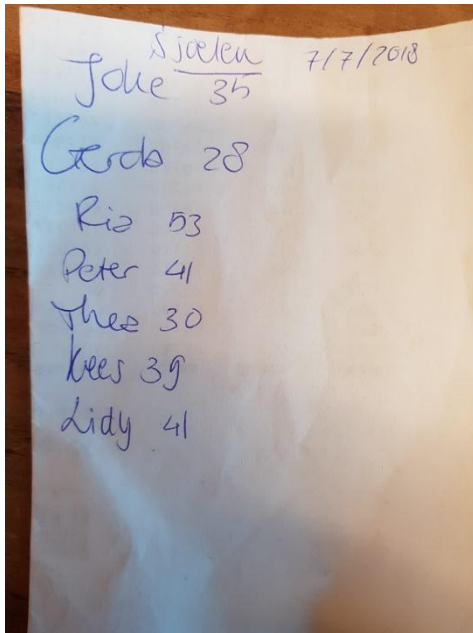 Sjoelen 7/7/2018
Joke 35
Gerda 28
Ria 53
Peter 41
Thea 30
Kees 39
Lidy 41